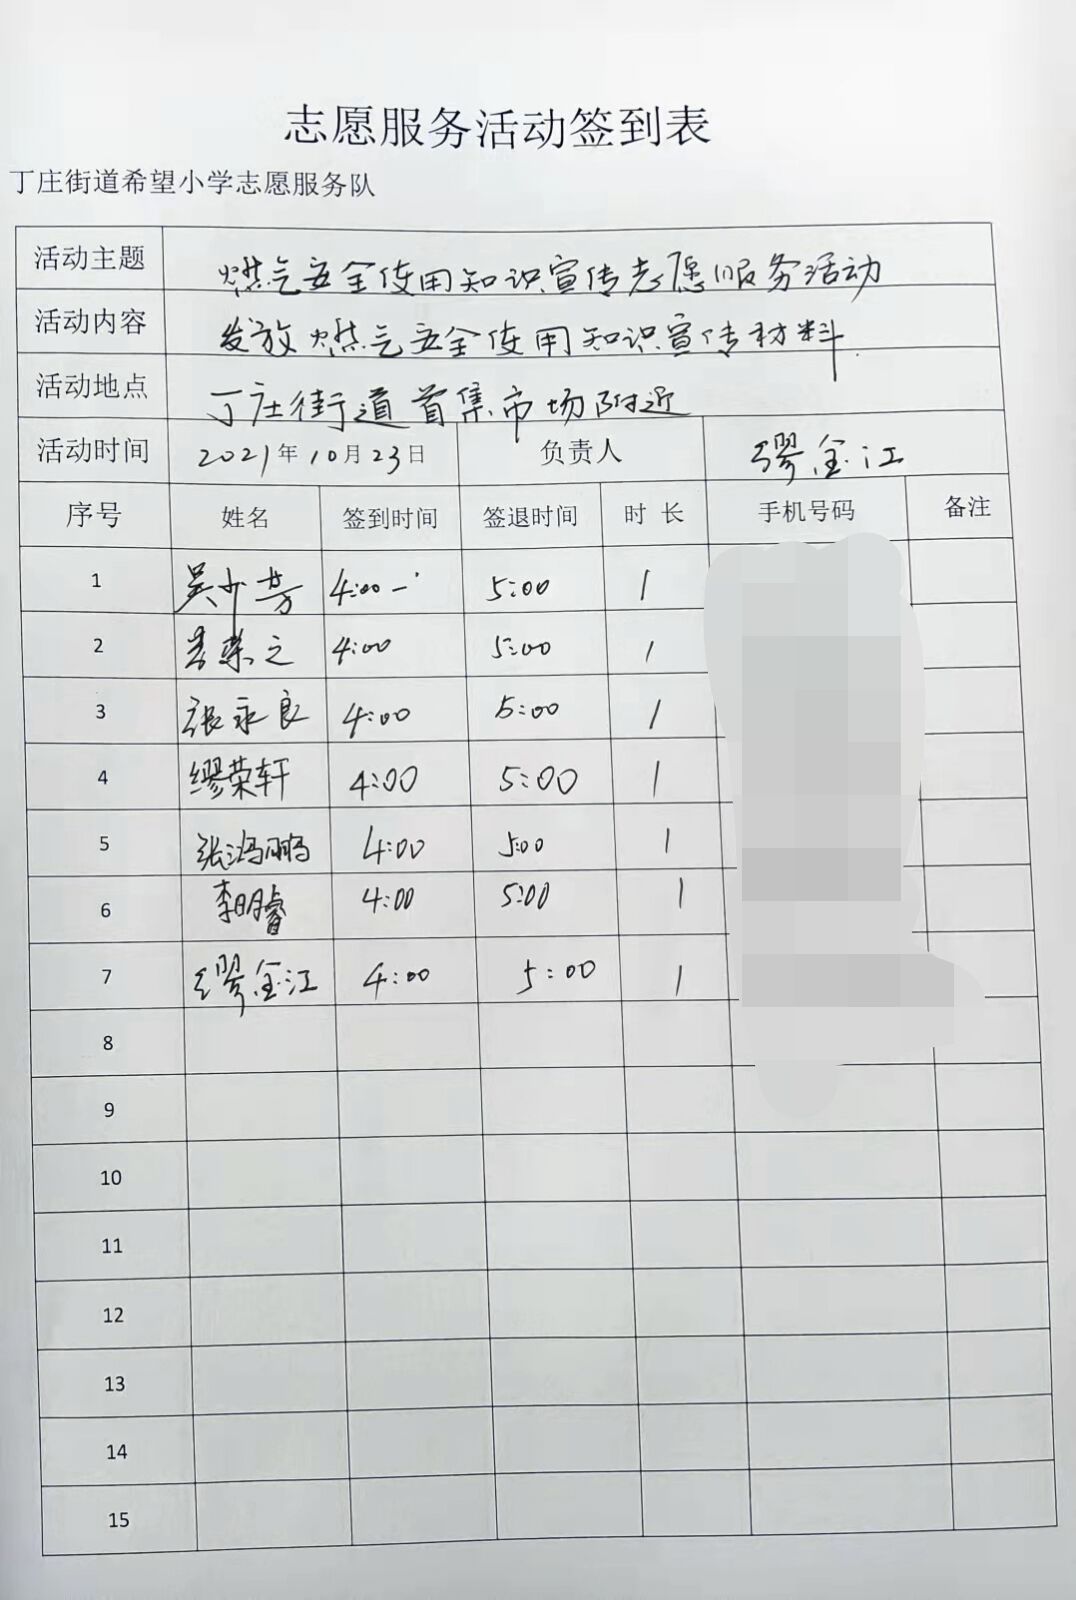 志愿服务活动签到表
丁庄街道希望小学志愿服务队
活动主题 燃气安全使用知识宣传志愿服务活动
活动内容 发放燃气安全使用知识宣传材料
活动地点 丁庄街道首集市场附近
活动时间 2021年10月23日 负责人 缪金江
序号 姓名 签到时间 签退时间 时 长 手机号码 备注
1 吴少芳 4:00 5:00 1
2 荣之 4:00 5:00 1
3 张永良 4:00 5:00 1
4 缪荣轩 4:00 5:00 1
5 张鸿鹏 4:00 5:00 1
6 李明睿 4:00 5:00 1
7 缪金江 4:00 5:00 1
8
9
10
11
12
13
14
15